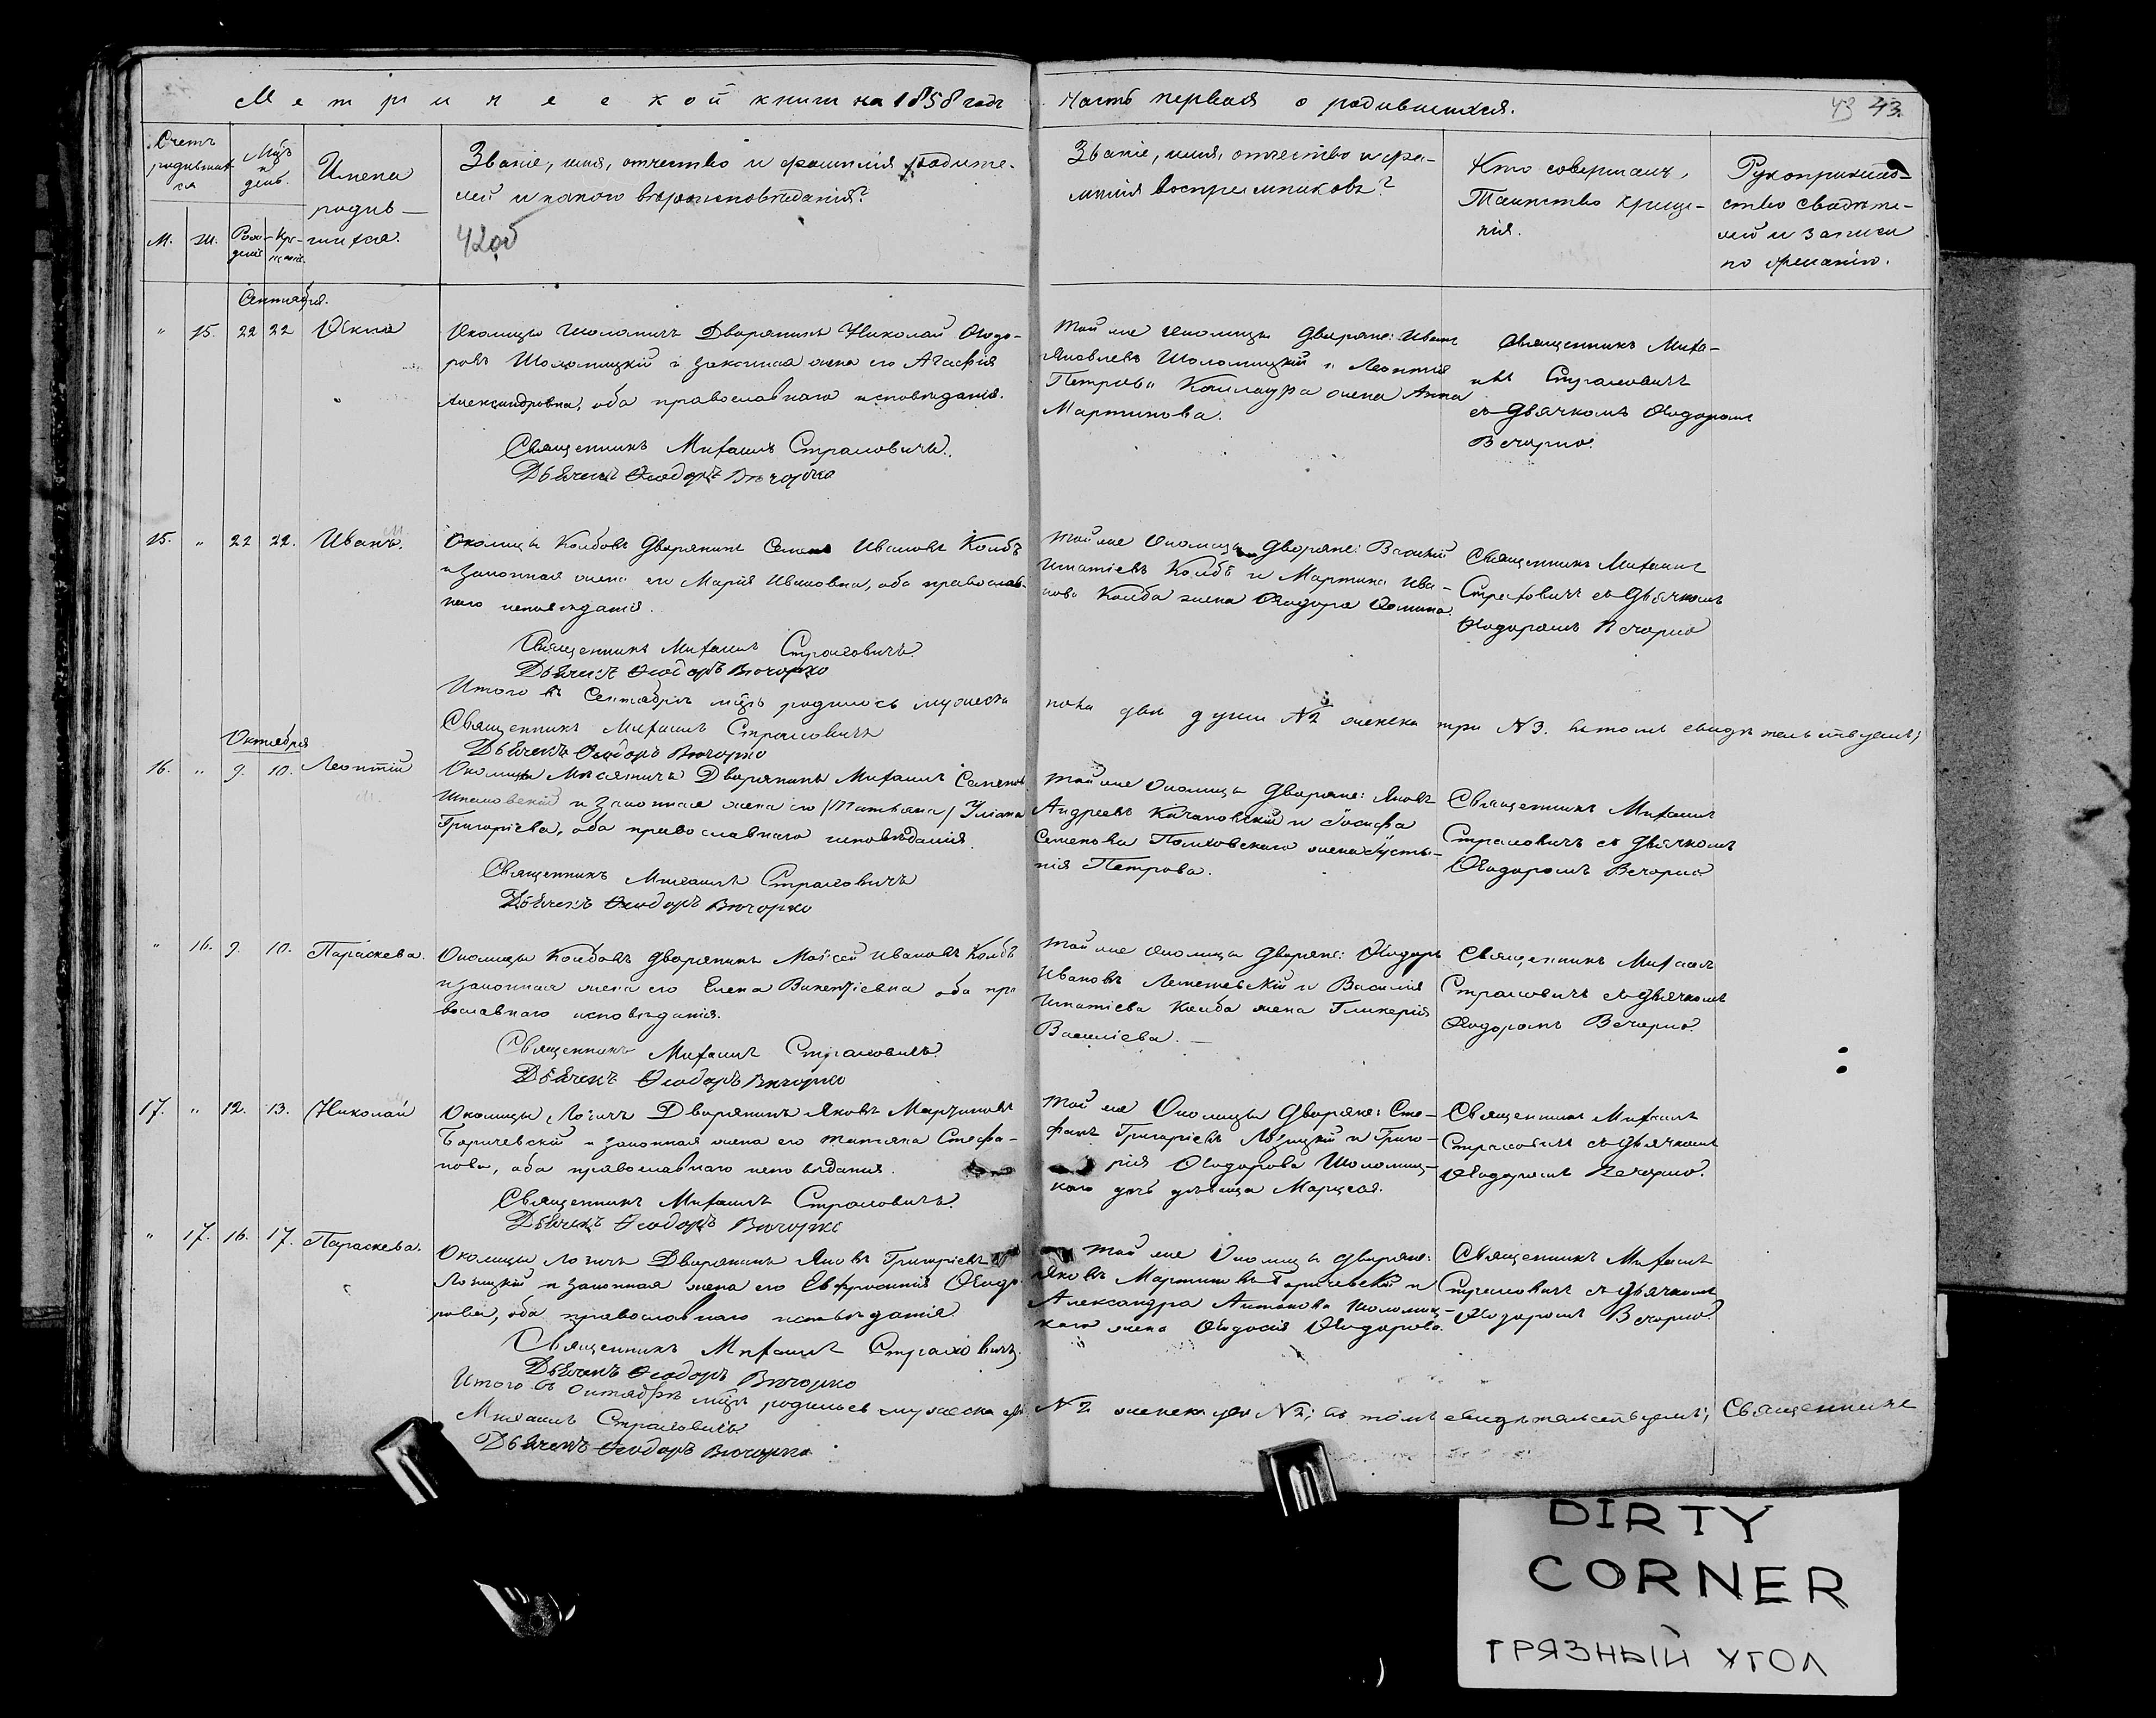 Метрической книги на 1858 годъ
Часть первая о родившихся.
43 43.
Счетъ
родившихся
М. Ж.
Мцъ и
день.
Рождения Крещения
Имена
родившихся.
Званіе, имя, отчество и фамилія родите-
лей и какого вѣроисповѣданія?
42об
Званіе, имя, отчество и фа-
милія воспріемниковъ?
Кто совершалъ
Таинство креще-
нія.
Рукоприклад-
ство свидѣте-
лей и записи
по желанію.
Сентября.
" 15. 22 22
Околицы Дворянинъ Николай Ѳеодо-
ровъ Шоломицкій и законная жена его Агафія
Александровна, оба православнаго исповѣданія.
Священникъ Михаилъ Страховичъ.
Дьячекъ Ѳеодоръ Вечорко
Той же околицы дворяне: Иванъ
Яковлевъ Шоломицкій и Леонтія
Петрова жена Анна
Мартинова.
Священникъ Миха-
илъ Страховичъ
съ дьячкомъ Ѳеодоромъ
Вечорко.
15. " 22 22. Иванъ.
Околицы Колбовъ дворянинъ Семенъ Ивановъ Колбъ
и законная жена его Марія Ивановна, оба православ-
наго исповѣданія.
Священникъ Михаилъ Страховичъ
Дьячекъ Ѳеодоръ Вечорко
Той же околицы дворяне: Василій
Игнатіевъ Колбъ и Мартина Ива-
нова Колба жена Ѳеодора
Священникъ Михаилъ
Страховичъ съ дьячкомъ
Ѳеодоромъ Вечорко
Итого въ Сентябрѣ мцѣ родилось мужеска
пола двѣ души №2 женска три №3. въ томъ свидѣтельствуемъ;
Священникъ Михаилъ Страховичъ
Дьячекъ Ѳеодоръ Вечорко
Октября
16. " 9. 10. Леонтій
Околицы Дворянинъ Михаилъ Семеновъ
и законная жена его /Татьяна/ Уліана
Григоріева, оба православнаго исповѣданія.
Священникъ Михаилъ Страховичъ
Дьячекъ Ѳеодоръ Вечорко
Той же околицы дворяне: Яковъ
Андреевъ Качановскій и Іосифа
Семенова жена Іусти-
нія Петрова.
Священникъ Михаилъ
Страховичъ съ дьячкомъ
Ѳеодоромъ Вечорко
" 16. 9. 10. Параскева.
Околицы Колбовъ дворянинъ Моѵсей Ивановъ Колбъ
и законная жена его Елена Викентіевна оба пра
вославнаго исповѣданія.
Священникъ Михаилъ Страховичъ
Дьячекъ Ѳеодоръ Вечорко
Той же околицы дворяне: Ѳеодоръ
Ивановъ и Василія
Игнатіева Колба жена Гликерія
Василіева.
Священникъ Михаилъ
Страховичъ съ дьячкомъ
Ѳеодоромъ Вечорко.
17. " 12. 13. Николай
Околицы Дворянинъ Яковъ Мартиновъ
Боричевскій и законная жена его Татьяна Стефа-
нова, оба православнаго исповѣданія.
Священникъ Михаилъ Страховичъ
Дьячекъ Ѳеодоръ Вечорко
Той же Околицы дворяне: Сте-
фанъ Григоріевъ и Григо-
рія Ѳеодорова Шоломиц-
каго дочь дѣвица
Священникъ Михаилъ
Страховичъ съ дьячкомъ
Ѳеодоромъ Вечорко.
" 17. 16. 17. Параскева.
Околицы Дворянинъ Яковъ Григоріевъ
и законная жена его Евфросинія Ѳеодо-
рова, оба православнаго исповѣданія.
Священникъ Михаилъ Страховичъ
Дьячекъ Ѳеодоръ Вечорко
Той же Околицы дворяне:
Яковъ Мартиновъ Боричевскій и
Александра Антонова Шоломиц-
каго жена Ѳеодосія Ѳеодорова.
Священникъ Михаилъ
Страховичъ съ дьячкомъ
Ѳеодоромъ Вечорко.
Итого въ Октябрѣ мцѣ родилось мужеска два
№2 женска два №2; въ томъ свидѣтельствуемъ; Священникъ
Михаилъ Страховичъ
Дьячекъ Ѳеодоръ Вечорко
DIRTY
CORNER
ГРЯЗНЫЙ УГОЛ